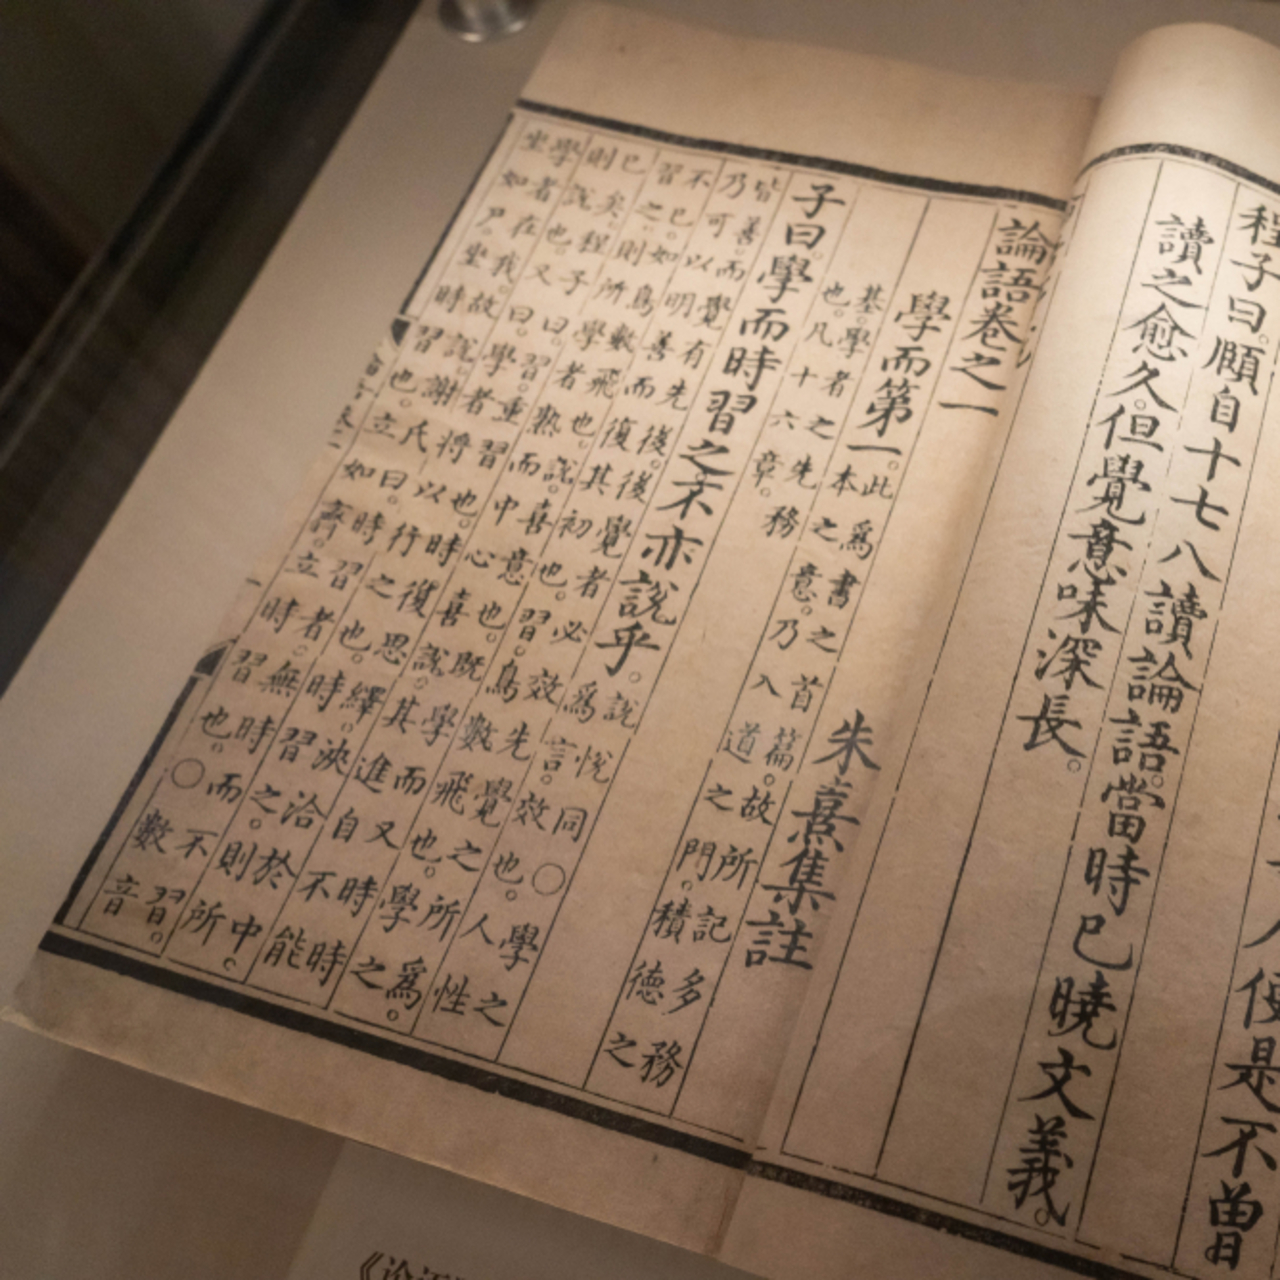 人便是不曾
程子曰。頤自十七八讀論語。當時已曉文義。
讀之愈久。但覺意味深長。
論語卷之一
朱熹集註
學而第一。
此爲書之首篇。故所記多務
本之意。乃入道之門。積德之
基。學者之先務
也。凡十六章。
子曰。學而時習之不亦說乎。
說悅同○學之
爲言。效也。人性
皆善。而覺有先後。後覺者必效先覺之所爲。
乃可以明善而復其初也。習。鳥數飛也。學之
不已。如鳥數飛也。說。喜意也。既學而又時時
習之。則所學者熟。而中心喜說。其進自不能
已矣。程子曰。習。重習也。時復思繹。浹洽於中。
則說也。又曰。學者。將以行之也。時習之。則所
學者在我。故說。謝氏曰。時習者。無時而不習。
坐如尸。坐時習也。立如齊。立時習也。○數音
《论语